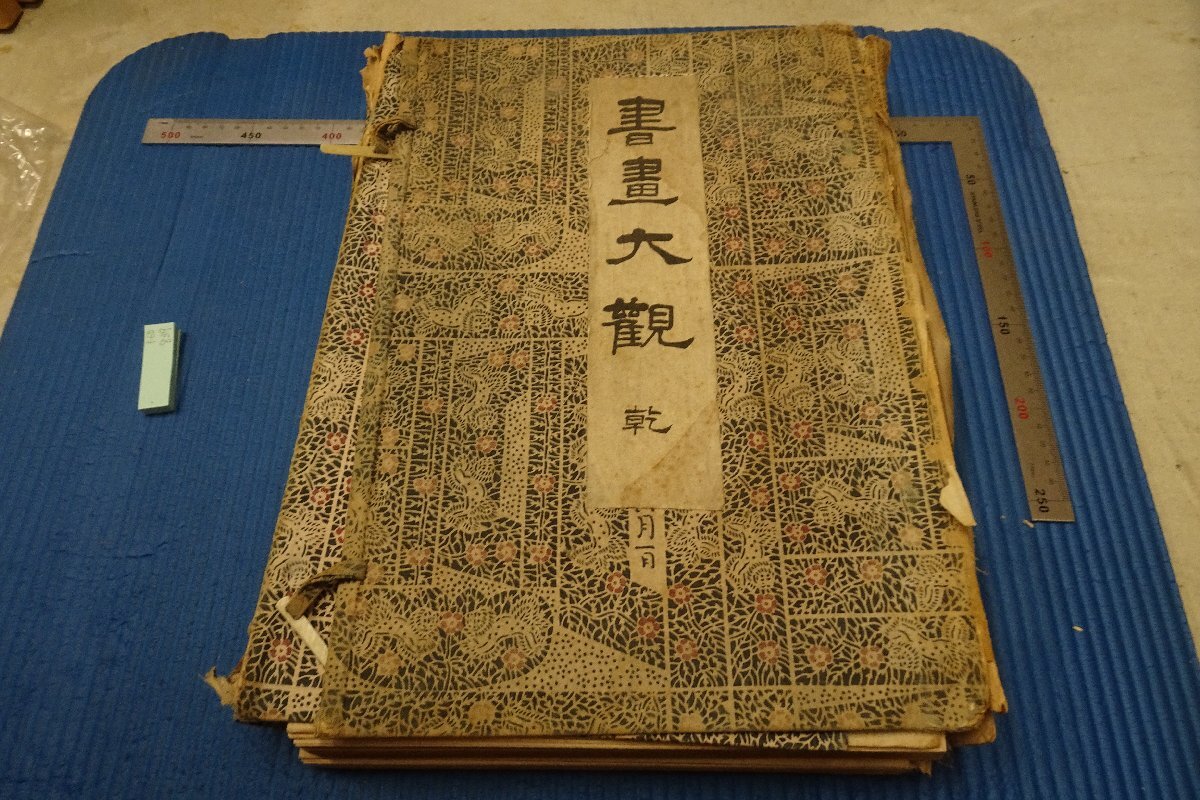 書畫大觀
乾
月一日
500
450
400
50
50
100
150
200
250